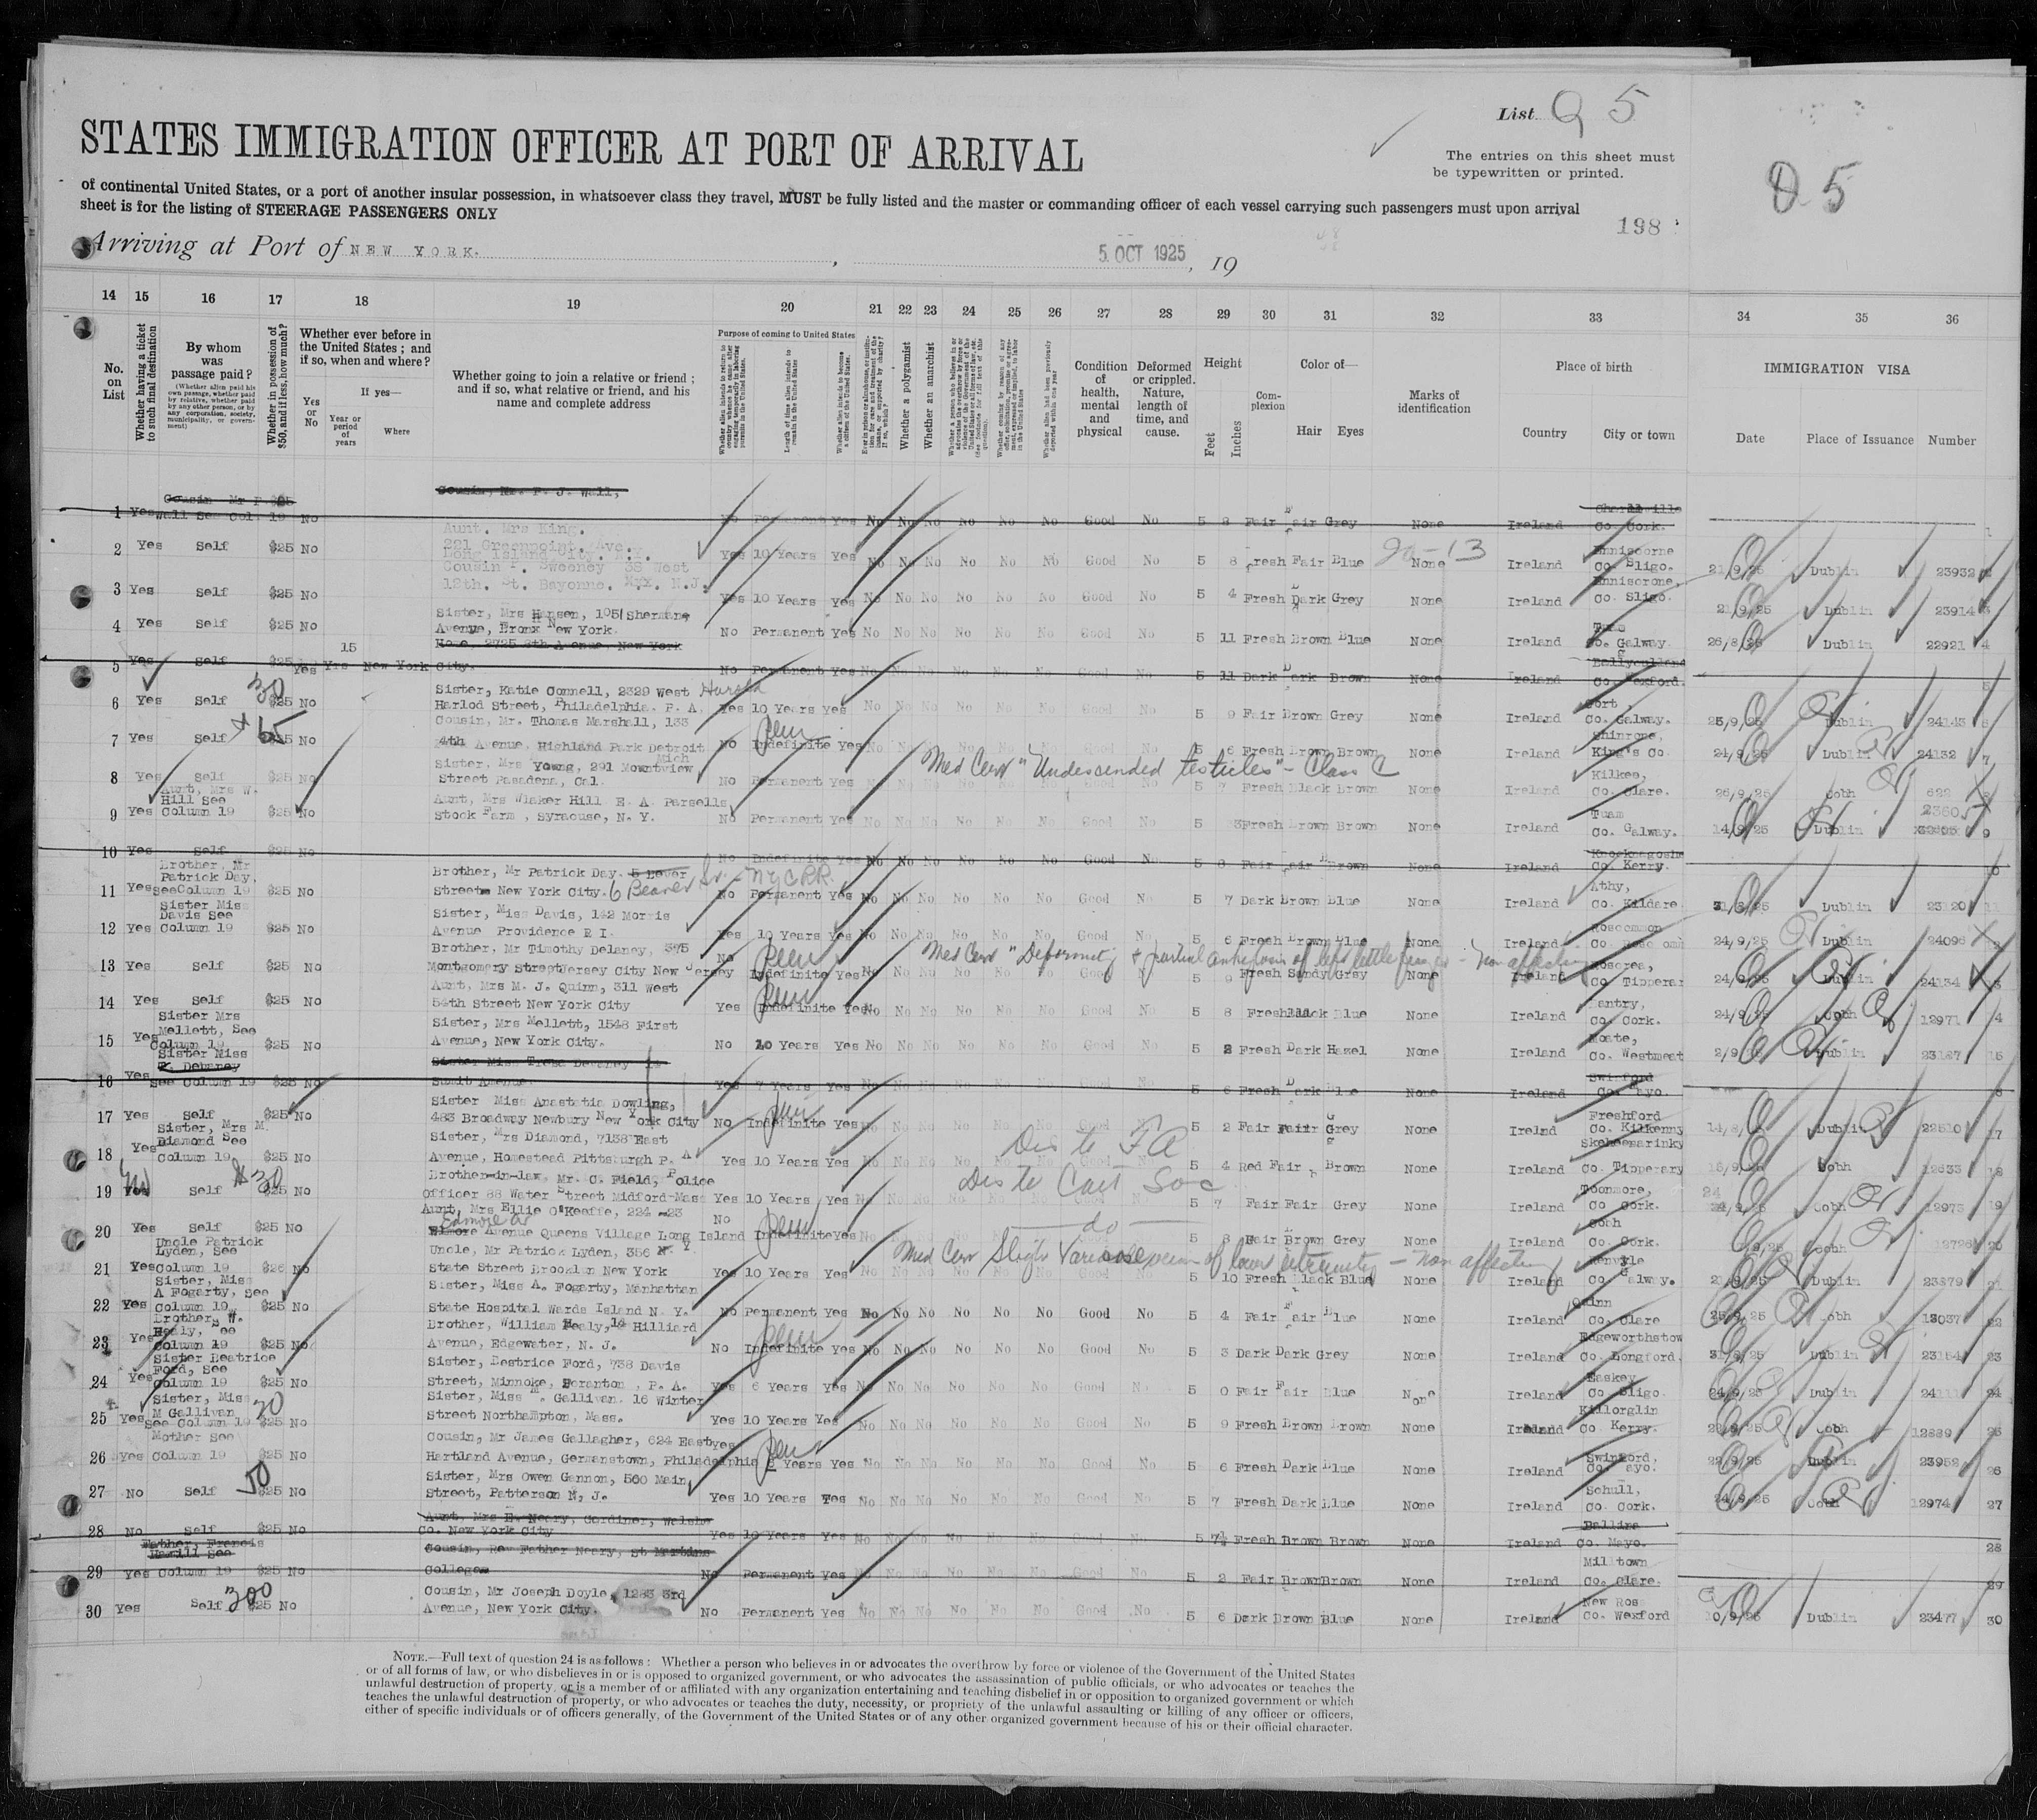 List Q 5
STATES IMMIGRATION OFFICER AT PORT OF ARRIVAL
The entries on this sheet must
be typewritten or printed.
Q 5
of continental United States, or a port of another insular possession, in whatsoever class they travel, MUST be fully listed and the master or commanding officer of each vessel carrying such passengers must upon arrival
sheet is for the listing of STEERAGE PASSENGERS ONLY
198
Arriving at Port of NEW YORK. , 5 OCT 1925 , 19
14 15 16 17 18 19 20 21 22 23 24 25 26 27 28 29 30 31 32 33 34 35 36
No. on List
Whether having a ticket to such final destination
By whom was passage paid?
(Whether alien paid his own passage, whether paid by relative, whether paid by any other person, or by any corporation, society, municipality, or government)
Whether in possession of $50, and if less, how much?
Whether ever before in the United States; and if so, when and where?
Yes or No
If yes—
Year or period of years
Where
Whether going to join a relative or friend; and if so, what relative or friend, and his name and complete address
Purpose of coming to United States
Length of time alien intends to remain in the United States
Whether alien intends to become a citizen of the United States
Whether a polygamist
Whether an anarchist
Condition of health, mental and physical
Deformed or crippled. Nature, length of time, and cause.
Height
Feet
Inches
Complexion
Color of—
Hair
Eyes
Marks of identification
Place of birth
Country
City or town
IMMIGRATION VISA
Date
Place of Issuance
Number
Cousin, Mr. P. J. Wall,
1 Yes Wall See Col. 19 No No Permanent Yes No No No No No No Good No 5 8 Fair Fair Grey None Ireland Co. Cork.
Aunt. Mrs King.
221 Greenpoint Ave.
Long Island City. N.Y.
2 Yes Self $25 No Yes 10 Years Yes No No No No No No Good No 5 8 Fresh Fair Blue None Ireland Enniscorne Co. Sligo. 21/9/25 Dublin 23932 2
Cousin P. Sweeney 38 West
12th. St. Bayonne. N.J.
3 Yes Self $25 No Yes 10 Years Yes No No No No No No Good No 5 4 Fresh Dark Grey None Ireland Enniscrone, Co Sligo. 21/9/25 Dublin 23914 3
Sister, Mrs Hansen, 1051 Shermane
Avenue, Bronx New York.
4 Yes Self $25 No No Permanent Yes No No No No No No Good No 5 11 Fresh Brown Blue None Ireland Co. Galway. 26/8/25 Dublin 22921 4
Home, 2725 8th Avenue, New York
City.
5 Yes Self $25 Yes 15 Yrs New York No Permanent Yes No 5 11 Dark Dark Brown None Ireland Co. Wexford.
Sister, Katie Connell, 2329 West Harold
Harlod Street, Philadelphia. P. A.
6 Yes Self 30 $25 No Yes 10 Years Yes No No No No No No Good No 5 9 Fair Brown Grey None Ireland Gort, Co. Galway. 25/9/25 Dublin 24143
Cousin, Mr. Thomas Marshall, 133
4th Avenue, Highland Park Detroit
Mich
7 Yes Self 65 No No Indefinite Perm Yes No No No No No No Good No 5 6 Fresh Brown Brown None Ireland Shinrone, King's Co. 24/9/25 Dublin 24132 7
Sister, Mrs Young, 291 Mountview
Street Pasadena, Cal.
Med Cert "Undescended testicles" – Class C
8 Yes Self $25 No No Permanent Yes 5 7 Fresh Black Brown None Ireland Kilkee, Co. Clare. 26/9/25 Cobh 622
Aunt, Mrs W. Hill See Column 19
Aunt, Mrs Wlaker Hill E. A. Parsells
Stock Farm, Syracuse, N. Y.
9 Yes $25 No No Permanent Yes No No No No No No Good No 5 3 Fresh Brown Brown None Ireland Tuam Co. Galway. 14/9/25 Dublin 23605 9
10 Yes Self $25 No No Indefinite Yes No No No No No No Good No 5 8 Fair Fair Brown None Ireland Co. Kerry. 10
Brother, Mr Patrick Day, See Column 19
Brother, Mr Patrick Day. 5 Lever
Street New York City. 6 Beaver St. – NYCRR
11 Yes $25 No No Permanent Yes No No No No No No Good No 5 7 Dark Brown Blue None Ireland Athy, Co. Kildare 31/8/25 Dublin 23120 11
Sister Miss Davis See Column 19
Sister, Miss Davis, 142 Morris
Avenue Providence R I.
12 Yes $25 No Yes 10 Years Yes No No No No No No Good No 5 6 Fresh Brown Blue None Ireland Roscommon 24/9/25 Dublin 24096
Brother, Mr Timothy Delaney, 375
Montgomery Street Jersey City New Jersey
Med Cert "Deformity & partial ankylosis of left little finger – Non affecting
13 Yes Self $25 No No Indefinite Perm Yes No 5 9 Fresh Sandy Gray None Ireland Roscrea, Co Tipperar 24/9/25 Dublin 24134
Aunt, Mrs M. J. Quinn, 311 West
54th Street New York City
14 Yes Self $25 No Yes Indefinite Perm Yes No No No No No No Good No 5 8 Fresh Black Blue None Ireland Bantry, Co. Cork. 24/9/25 Cobh 12971
Sister Mrs Mellett, See Column 19
Sister, Mrs Mellett, 1548 First
Avenue, New York City.
15 Yes $25 No No 20 Years Yes No No No No No No Good No 5 2 Fresh Dark Hazel None Ireland Moate, Co. Westmeat Dublin 23187 15
Sister Miss T. Devaney See Column 19
Sister Miss Tresa Devaney
16 Yes $25 No Yes 7 Years Yes 5 6 Fresh Dark Blue None Ireland Swinford Co. Mayo.
Sister Miss Anastatia Dowling,
483 Broadway Newbury New York City
17 Yes Self $25 No No Indefinite Perm Yes No No No No No No Good No 5 2 Fair Fair Grey None Irelnd Freshford Co. Kilkenny 14/8/25 Dublin 22510 17
Sister, Mrs M. Diamond See Column 19
Sister, Mrs Diamond, 7138 East
Avenue, Homestead Pittsburgh P. A
Dis to F A
18 Yes $25 No Yes 10 Years Yes No No No No No No Good No 5 4 Red Fair Brown None Ireland Co. Tipperary Cobh 12633 18
Brother-in-law, Mr. C. Field, Police
Officer 88 Water Street Midford Mass
Dis to Cait Soc
19 Yes Self $30 $25 No Yes 10 Years Yes 5 7 Fair Fair Grey None Ireland Toonmore, Co. Cork. 24/9/25 Cobh 12973 19
Aunt, Mrs Ellie O'Keeffe, 224 –23
Edmore Av
Elmore Avenue Queens Village Long Island
do
20 Yes Self $25 No No Indefinite Perm Yes 5 8 Fair Brown Grey None Ireland Cobh Co. Cork. Cobh 20
Uncle Patrick Lyden, See Column 19
Uncle, Mr Patrick Lyden, 356 N. Y.
State Street Brooklyn New York
Med Cert Slight Varicose veins of lower extremity – non affecting
21 Yes No Yes 10 Years Yes 5 10 Fresh Black Blue None Ireland Co Galway. Dublin 23879 21
Sister, Miss A Fogarty, See Column 19
Sister, Miss A. Fogarty, Manhattan
State Hospital Wards Island N. Y.
22 Yes $25 No No Permanent Yes No No No No No No Good No 5 4 Fair Fair Blue None Ireland Quinn Co. Clare 25/9/25 Cobh 13037 22
Brother, W. Healy, See Column 19
Brother, William Healy, 18 Hilliard
Avenue, Edgewater, N. J.
23 Yes $25 No No Indefinite Perm Yes No No No No No No Good No 5 3 Dark Dark Grey None Ireland Edgeworthstow Co. Longford. 31/8/25 Dublin 23154 23
Sister Beatrice Ford, See Column 19
Sister, Bestrice Ford, 738 Davis
Street, Minnoke, Scranton, P. A.
24 Yes $25 No Yes 6 Years Yes No No No No No No Good No 5 0 Fair Fair Blue None Ireland Easkey Co Sligo. 24/9/25 Dublin 24
Sister, Miss M Gallivan See Column 19
Sister, Miss M. Gallivan. 16 Winter
Street Northampton, Mass.
25 Yes 20 $25 No Yes 10 Years Yes No No No No No No Good No 5 9 Fresh Brown Brown None Ireland Killorglin Co Kerry. Cobh 12889 25
Mother See Column 19
Cousin, Mr James Gallagher, 624 East
Hartland Avenue, Germanstown, Philadelphia
26 Yes $25 No Yes Years Perm Yes No No No No No No Good No 5 6 Fresh Dark Blue None Ireland Swinford, Co. Mayo. 22/9/25 Dublin 23952 26
Sister, Mrs Owen Gannon, 560 Main
Street, Patterson N. J.
27 No Self 50 $25 No Yes 10 Years Yes No No No No No No Good No 5 7 Fresh Dark Blue None Ireland Schull, Co. Cork. 24/9/25 Cobh 12974 27
Aunt, Mrs E. Neary, Gardiner, Walshe
Co. New York City
28 No Self $25 No Yes 10 Years Yes No No No No No No Good No 5 7½ Fresh Brown Brown None Ireland Ballina Co. Mayo. 28
Father, Francis See Column 19
Cousin, Rev Father Neary, St Martins
College
29 Yes $25 No No Permanent Yes 5 2 Fair Brown Brown None Ireland Milltown Co. Clare. 29
Cousin, Mr Joseph Doyle, 1283 3rd
Avenue, New York City.
30 Yes Self 300 $25 No No Permanent Yes No No No No No No Good No 5 6 Dark Brown Blue None Ireland New Ross Co. Wexford Dublin 23477 30
NOTE.—Full text of question 24 is as follows: Whether a person who believes in or advocates the overthrow by force or violence of the Government of the United States
or of all forms of law, or who disbelieves in or is opposed to organized government, or who advocates the assassination of public officials, or who advocates or teaches the
unlawful destruction of property, or is a member of or affiliated with any organization entertaining and teaching disbelief in or opposition to organized government or which
teaches the unlawful destruction of property, or who advocates or teaches the duty, necessity, or propriety of the unlawful assaulting or killing of any officer or officers,
either of specific individuals or of officers generally, of the Government of the United States or of any other organized government because of his or their official character.